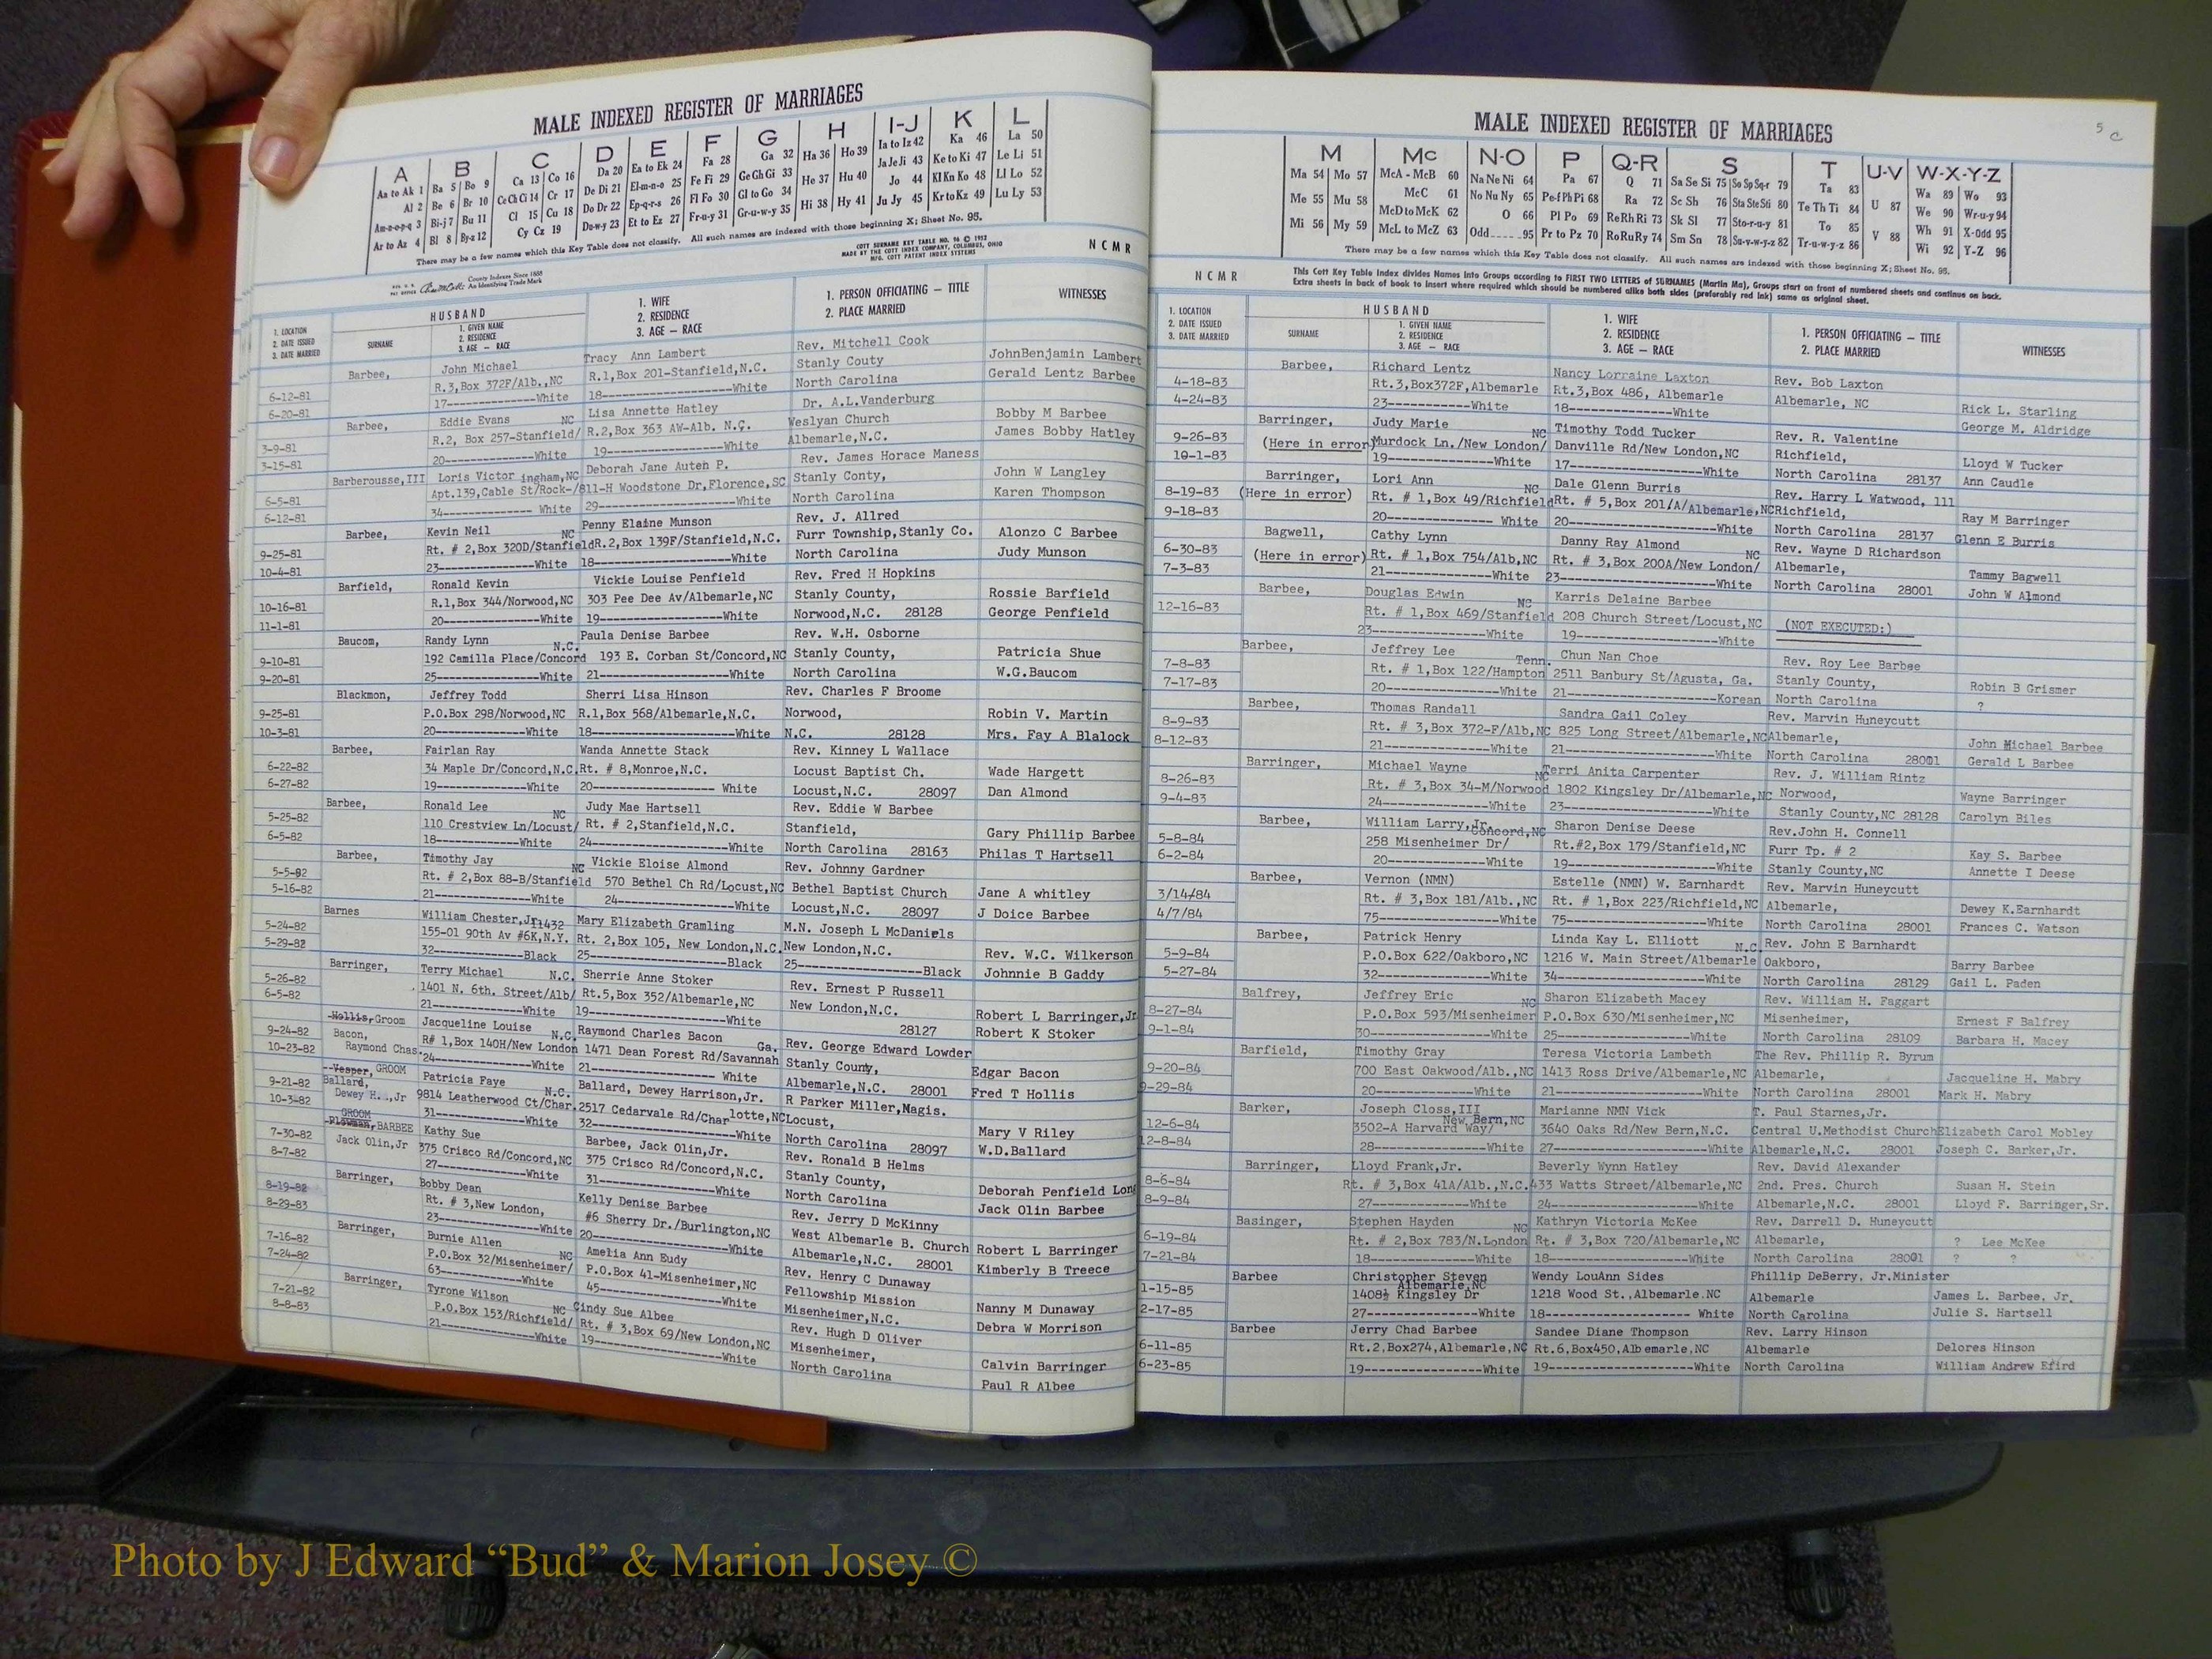 MALE INDEXED REGISTER OF MARRIAGES
A B C D E F G H I-J K L
Aa to Ak 1 Ba 5 Bo 9 Ca 13 Co 16 Da 20 Ea to Ek 24 Fa 28 Ga 32 Ha 36 Ho 39 Ia to Iz 42 Ka 46 La 50
Al 2 Be 6 Br 10 Ce Ch Ci 14 Cr 17 De Di 21 El-m-n-o 25 Fe Fi 29 Ge Gh Gi 33 He 37 Hu 40 Ja Je Ji 43 Ke to Ki 47 Le Li 51
Am-n-o-p-q 3 Bi-j 7 Bu 11 Cl 15 Cu 18 Do Dr 22 Ep-q-r-s 26 Fl Fo 30 Gl to Go 34 Hi 38 Hy 41 Jo 44 Kl Kn Ko 48 Ll Lo 52
Ar to Az 4 Bl 8 By-z 12 Cy Cz 19 Du-w-y 23 Et to Ez 27 Fr-u-y 31 Gr-u-w-y 35 Ju Jy 45 Kr to Kz 49 Lu Ly 53
There may be a few names which this Key Table does not classify. All such names are indexed with those beginning X; Sheet No. 95.
COTT SURNAME KEY TABLE NO. 96 © 1952
MADE BY THE COTT INDEX COMPANY, COLUMBUS, OHIO
MFG. COTT PATENT INDEX SYSTEMS
N C M R
County Indexes Since 1888
An Identifying Trade Mark
1. LOCATION
2. DATE ISSUED
3. DATE MARRIED
HUSBAND
SURNAME
1. GIVEN NAME
2. RESIDENCE
3. AGE — RACE
1. WIFE
2. RESIDENCE
3. AGE — RACE
1. PERSON OFFICIATING — TITLE
2. PLACE MARRIED
WITNESSES
Barbee, John Michael Tracy Ann Lambert Rev. Mitchell Cook
6-12-81 R.3,Box 372F/Alb.,NC R.1,Box 201-Stanfield,N.C. Stanly Couty JohnBenjamin Lambert
6-20-81 17--------------White 18------------------White North Carolina Gerald Lentz Barbee
Barbee, Eddie Evans NC Lisa Annette Hatley Dr. A.L.Vanderburg
3-9-81 R.2, Box 257-Stanfield/ R.2,Box 363 AW-Alb. N.C. Weslyan Church Bobby M Barbee
3-15-81 20--------------White 19------------------White Albemarle,N.C. James Bobby Hatley
Barberousse,III Loris Victor ingham,NC Deborah Jane Auten P. Rev. James Horace Maness
6-5-81 Apt.139,Cable St/Rock-/ 811-H Woodstone Dr,Florence,SC Stanly Conty, John W Langley
6-12-81 34-------------- White 29------------------White North Carolina Karen Thompson
Barbee, Kevin Neil NC Penny Elaine Munson Rev. J. Allred
9-25-81 Rt. # 2,Box 320D/Stanfield R.2,Box 139F/Stanfield,N.C. Furr Township,Stanly Co. Alonzo C Barbee
10-4-81 23--------------White 18------------------White North Carolina Judy Munson
Barfield, Ronald Kevin Vickie Louise Penfield Rev. Fred H Hopkins
10-16-81 R.1,Box 344/Norwood,NC 303 Pee Dee Av/Albemarle,NC Stanly County, Rossie Barfield
11-1-81 20--------------White 19------------------White Norwood,N.C. 28128 George Penfield
Baucom, Randy Lynn N.C. Paula Denise Barbee Rev. W.H. Osborne
9-10-81 192 Camilla Place/Concord 193 E. Corban St/Concord,NC Stanly County, Patricia Shue
9-20-81 25--------------White 21------------------White North Carolina W.G.Baucom
Blackmon, Jeffrey Todd Sherri Lisa Hinson Rev. Charles F Broome
9-25-81 P.O.Box 298/Norwood,NC R.1,Box 568/Albemarle,N.C. Norwood, Robin V. Martin
10-3-81 20--------------White 18------------------White N.C. 28128 Mrs. Fay A Blalock
Barbee, Fairlan Ray Wanda Annette Stack Rev. Kinney L Wallace
6-22-82 34 Maple Dr/Concord,N.C. Rt. # 8,Monroe,N.C. Locust Baptist Ch. Wade Hargett
6-27-82 19--------------White 20---------------- White Locust,N.C. 28097 Dan Almond
Barbee, Ronald Lee NC Judy Mae Hartsell Rev. Eddie W Barbee
5-25-82 110 Crestview Ln/Locust/ Rt. # 2,Stanfield,N.C. Stanfield, Gary Phillip Barbee
6-5-82 18--------------White 24------------------White North Carolina 28163 Philas T Hartsell
Barbee, Timothy Jay NC Vickie Eloise Almond Rev. Johnny Gardner
5-5-82 Rt. # 2,Box 88-B/Stanfield 570 Bethel Ch Rd/Locust,NC Bethel Baptist Church Jane A whitley
5-16-82 21--------------White 24------------------White Locust,N.C. 28097 J Doice Barbee
Barnes William Chester,Jr 11432 Mary Elizabeth Gramling M.N. Joseph L McDaniels
5-24-82 155-01 90th Av #6K,N.Y. Rt. 2,Box 105, New London,N.C. New London,N.C. Rev. W.C. Wilkerson
5-29-82 32--------------Black 25------------------Black 25------------------Black Johnnie B Gaddy
Barringer, Terry Michael N.C. Sherrie Anne Stoker Rev. Ernest P Russell
5-26-82 1401 N. 6th. Street/Alb/ Rt.5,Box 352/Albemarle,NC New London,N.C. Robert L Barringer,Jr
6-5-82 21--------------White 19------------------White 28127 Robert K Stoker
Hollis,Groom Jacqueline Louise N.C. Raymond Charles Bacon Ga. Rev. George Edward Lowder
9-24-82 Bacon, R# 1,Box 140H/New London 1471 Dean Forest Rd/Savannah Stanly County, Edgar Bacon
10-23-82 Raymond Chas. 24--------------White 21---------------- White Albemarle,N.C. 28001 Fred T Hollis
Vesper, GROOM Patricia Faye N.C. Ballard, Dewey Harrison,Jr. R Parker Miller,Magis.
9-21-82 Ballard, 9814 Leatherwood Ct/Char. 2517 Cedarvale Rd/Char lotte,NC Locust, Mary V Riley
10-3-82 Dewey H..,Jr 31--------------White 32------------------White North Carolina 28097 W.D.Ballard
GROOM
Plowman,BARBEE Kathy Sue Barbee, Jack Olin,Jr. Rev. Ronald B Helms
7-30-82 Jack Olin,Jr 375 Crisco Rd/Concord,NC 375 Crisco Rd/Concord,N.C. Stanly County, Deborah Penfield Long
8-7-82 27--------------White 31------------------White North Carolina Jack Olin Barbee
Barringer, Bobby Dean Kelly Denise Barbee Rev. Jerry D McKinny
8-19-82 Rt. # 3,New London, #6 Sherry Dr./Burlington,NC West Albemarle B. Church Robert L Barringer
8-29-83 23--------------White 20------------------White Albemarle,N.C. 28001 Kimberly B Treece
Barringer, Burnie Allen NC Amelia Ann Eudy Rev. Henry C Dunaway
7-16-82 P.O.Box 32/Misenheimer/ P.O.Box 41-Misenheimer,NC Fellowship Mission Nanny M Dunaway
7-24-82 63--------------White 45------------------White Misenheimer,N.C. Debra W Morrison
Barringer, Tyrone Wilson NC Cindy Sue Albee Rev. Hugh D Oliver
7-21-82 P.O.Box 153/Richfield/ Rt. # 3,Box 69/New London,NC Misenheimer, Calvin Barringer
8-8-83 21--------------White 19------------------White North Carolina Paul R Albee
MALE INDEXED REGISTER OF MARRIAGES
5 C
M Mc N-O P Q-R S T U-V W-X-Y-Z
Ma 54 Mo 57 McA - McB 60 Na Ne Ni 64 Pa 67 Q 71 Sa Se Si 75 So Sp Sq-r 79 Ta 83 U 87 Wa 89 Wo 93
Me 55 Mu 58 McC 61 No Nu Ny 65 Pe-f Ph Pi 68 Ra 72 Sc Sh 76 Sta Ste Sti 80 Te Th Ti 84 V 88 We 90 Wr-u-y 94
Mi 56 My 59 McD to McK 62 O 66 Pl Po 69 Re Rh Ri 73 Sk Sl 77 Sto-r-u-y 81 To 85 Wh 91 X-Odd 95
McL to McZ 63 Odd 95 Pr to Pz 70 Ro Ru Ry 74 Sm Sn 78 Su-v-w-y-z 82 Tr-u-w-y-z 86 Wi 92 Y-Z 96
There may be a few names which this Key Table does not classify. All such names are indexed with those beginning X; Sheet No. 95.
N C M R
This Cott Key Table Index divides Names into Groups according to FIRST TWO LETTERS of SURNAMES (Martin Ma), Groups start on front of numbered sheets and continue on back.
Extra sheets in back of book to insert where required which should be numbered alike both sides (preferably red ink) same as original sheet.
1. LOCATION
2. DATE ISSUED
3. DATE MARRIED
HUSBAND
SURNAME
1. GIVEN NAME
2. RESIDENCE
3. AGE — RACE
1. WIFE
2. RESIDENCE
3. AGE — RACE
1. PERSON OFFICIATING — TITLE
2. PLACE MARRIED
WITNESSES
Barbee, Richard Lentz Nancy Lorraine Laxton Rev. Bob Laxton
4-18-83 Rt.3,Box372F,Albemarle Rt.3,Box 486, Albemarle Albemarle, NC Rick L. Starling
4-24-83 23-----------White 18---------------White George M. Aldridge
Barringer, Judy Marie NC Timothy Todd Tucker Rev. R. Valentine
9-26-83 (Here in error) Murdock Ln./New London/ Danville Rd/New London,NC Richfield, Lloyd W Tucker
10-1-83 19--------------White 17------------------White North Carolina 28137 Ann Caudle
Barringer, Lori Ann NC Dale Glenn Burris Rev. Harry L Watwood, 111
8-19-83 (Here in error) Rt. # 1,Box 49/Richfield Rt. # 5,Box 201/A/Albemarle,NC Richfield, Ray M Barringer
9-18-83 20-------------- White 20------------------White North Carolina 28137 Glenn E Burris
Bagwell, Cathy Lynn Danny Ray Almond NC Rev. Wayne D Richardson
6-30-83 (Here in error) Rt. # 1,Box 754/Alb,NC Rt. # 3,Box 200A/New London/ Albemarle, Tammy Bagwell
7-3-83 21--------------White 23------------------White North Carolina 28001 John W Almond
Barbee, Douglas Edwin NC Karris Delaine Barbee
12-16-83 Rt. # 1,Box 469/Stanfield 208 Church Street/Locust,NC (NOT EXECUTED:)
23--------------White 19------------------White
Barbee, Jeffrey Lee Tenn. Chun Nan Choe Rev. Roy Lee Barbee
7-8-83 Rt. # 1,Box 122/Hampton 2511 Banbury St/Agusta, Ga. Stanly County, Robin B Grismer
7-17-83 20--------------White 21------------------Korean North Carolina ?
Barbee, Thomas Randall Sandra Gail Coley Rev. Marvin Huneycutt
8-9-83 Rt. # 3,Box 372-F/Alb,NC 825 Long Street/Albemarle,NC Albemarle, John Michael Barbee
8-12-83 21--------------White 21------------------White North Carolina 28001 Gerald L Barbee
Barringer, Michael Wayne NC Terri Anita Carpenter Rev. J. William Rintz
8-26-83 Rt. # 3,Box 34-M/Norwood 1802 Kingsley Dr/Albemarle,NC Norwood, Wayne Barringer
9-4-83 24--------------White 23------------------White Stanly County,NC 28128 Carolyn Biles
Barbee, William Larry,Jr. Concord,NC Sharon Denise Deese Rev.John H. Connell
5-8-84 258 Misenheimer Dr/ Rt.#2,Box 179/Stanfield,NC Furr Tp. # 2 Kay S. Barbee
6-2-84 20--------------White 19------------------White Stanly County,NC Annette I Deese
Barbee, Vernon (NMN) Estelle (NMN) W. Earnhardt Rev. Marvin Huneycutt
3/14/84 Rt. # 3,Box 181/Alb.,NC Rt. # 1,Box 223/Richfield,NC Albemarle, Dewey K.Earnhardt
4/7/84 75--------------White 75------------------White North Carolina 28001 Frances C. Watson
Barbee, Patrick Henry Linda Kay L. Elliott N.C. Rev. John E Barnhardt
5-9-84 P.O.Box 622/Oakboro,NC 1216 W. Main Street/Albemarle Oakboro, Barry Barbee
5-27-84 32--------------White 34------------------White North Carolina 28129 Gail L. Paden
Balfrey, Jeffrey Eric NC Sharon Elizabeth Macey Rev. William H. Faggart
8-27-84 P.O.Box 593/Misenheimer P.O.Box 630/Misenheimer,NC Misenheimer, Ernest F Balfrey
9-1-84 30--------------White 25------------------White North Carolina 28109 Barbara H. Macey
Barfield, Timothy Gray Teresa Victoria Lambeth The Rev. Phillip R. Byrum
9-20-84 700 East Oakwood/Alb.,NC 1413 Ross Drive/Albemarle,NC Albemarle, Jacqueline H. Mabry
9-29-84 20--------------White 21------------------White North Carolina 28001 Mark H. Mabry
Barker, Joseph Closs,III New Bern,NC Marianne NMN Vick T. Paul Starnes,Jr.
12-6-84 3502-A Harvard Way/ 3640 Oaks Rd/New Bern,N.C. Central U.Methodist Church Elizabeth Carol Mobley
12-8-84 28--------------White 27------------------White Albemarle,N.C. 28001 Joseph C. Barker,Jr.
Barringer, Lloyd Frank,Jr. Beverly Wynn Hatley Rev. David Alexander
8-6-84 Rt. # 3,Box 41A/Alb.,N.C. 433 Watts Street/Albemarle,NC 2nd. Pres. Church Susan H. Stein
8-9-84 27--------------White 24------------------White Albemarle,N.C. 28001 Lloyd F. Barringer,Sr.
Basinger, Stephen Hayden NC Kathryn Victoria McKee Rev. Darrell D. Huneycutt
6-19-84 Rt. # 2,Box 783/N.London Rt. # 3,Box 720/Albemarle,NC Albemarle, ? Lee McKee
7-21-84 18--------------White 18------------------White North Carolina 28001 ? ?
Barbee Christopher Steven Albemarle,NC Wendy LouAnn Sides Phillip DeBerry, Jr.Minister
1-15-85 1408½ Kingsley Dr 1218 Wood St.,Albemarle.NC Albemarle James L. Barbee, Jr.
2-17-85 27--------------White 18---------------- White North Carolina Julie S. Hartsell
Barbee Jerry Chad Barbee Sandee Diane Thompson Rev. Larry Hinson
6-11-85 Rt.2,Box274,Albemarle,NC Rt.6,Box450,Albemarle,NC Albemarle Delores Hinson
6-23-85 19--------------White 19------------------White North Carolina William Andrew Efird
Photo by J Edward “Bud” & Marion Josey ©